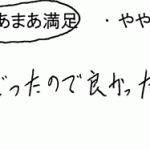 あまあ満足 ・やや
どったので良かった